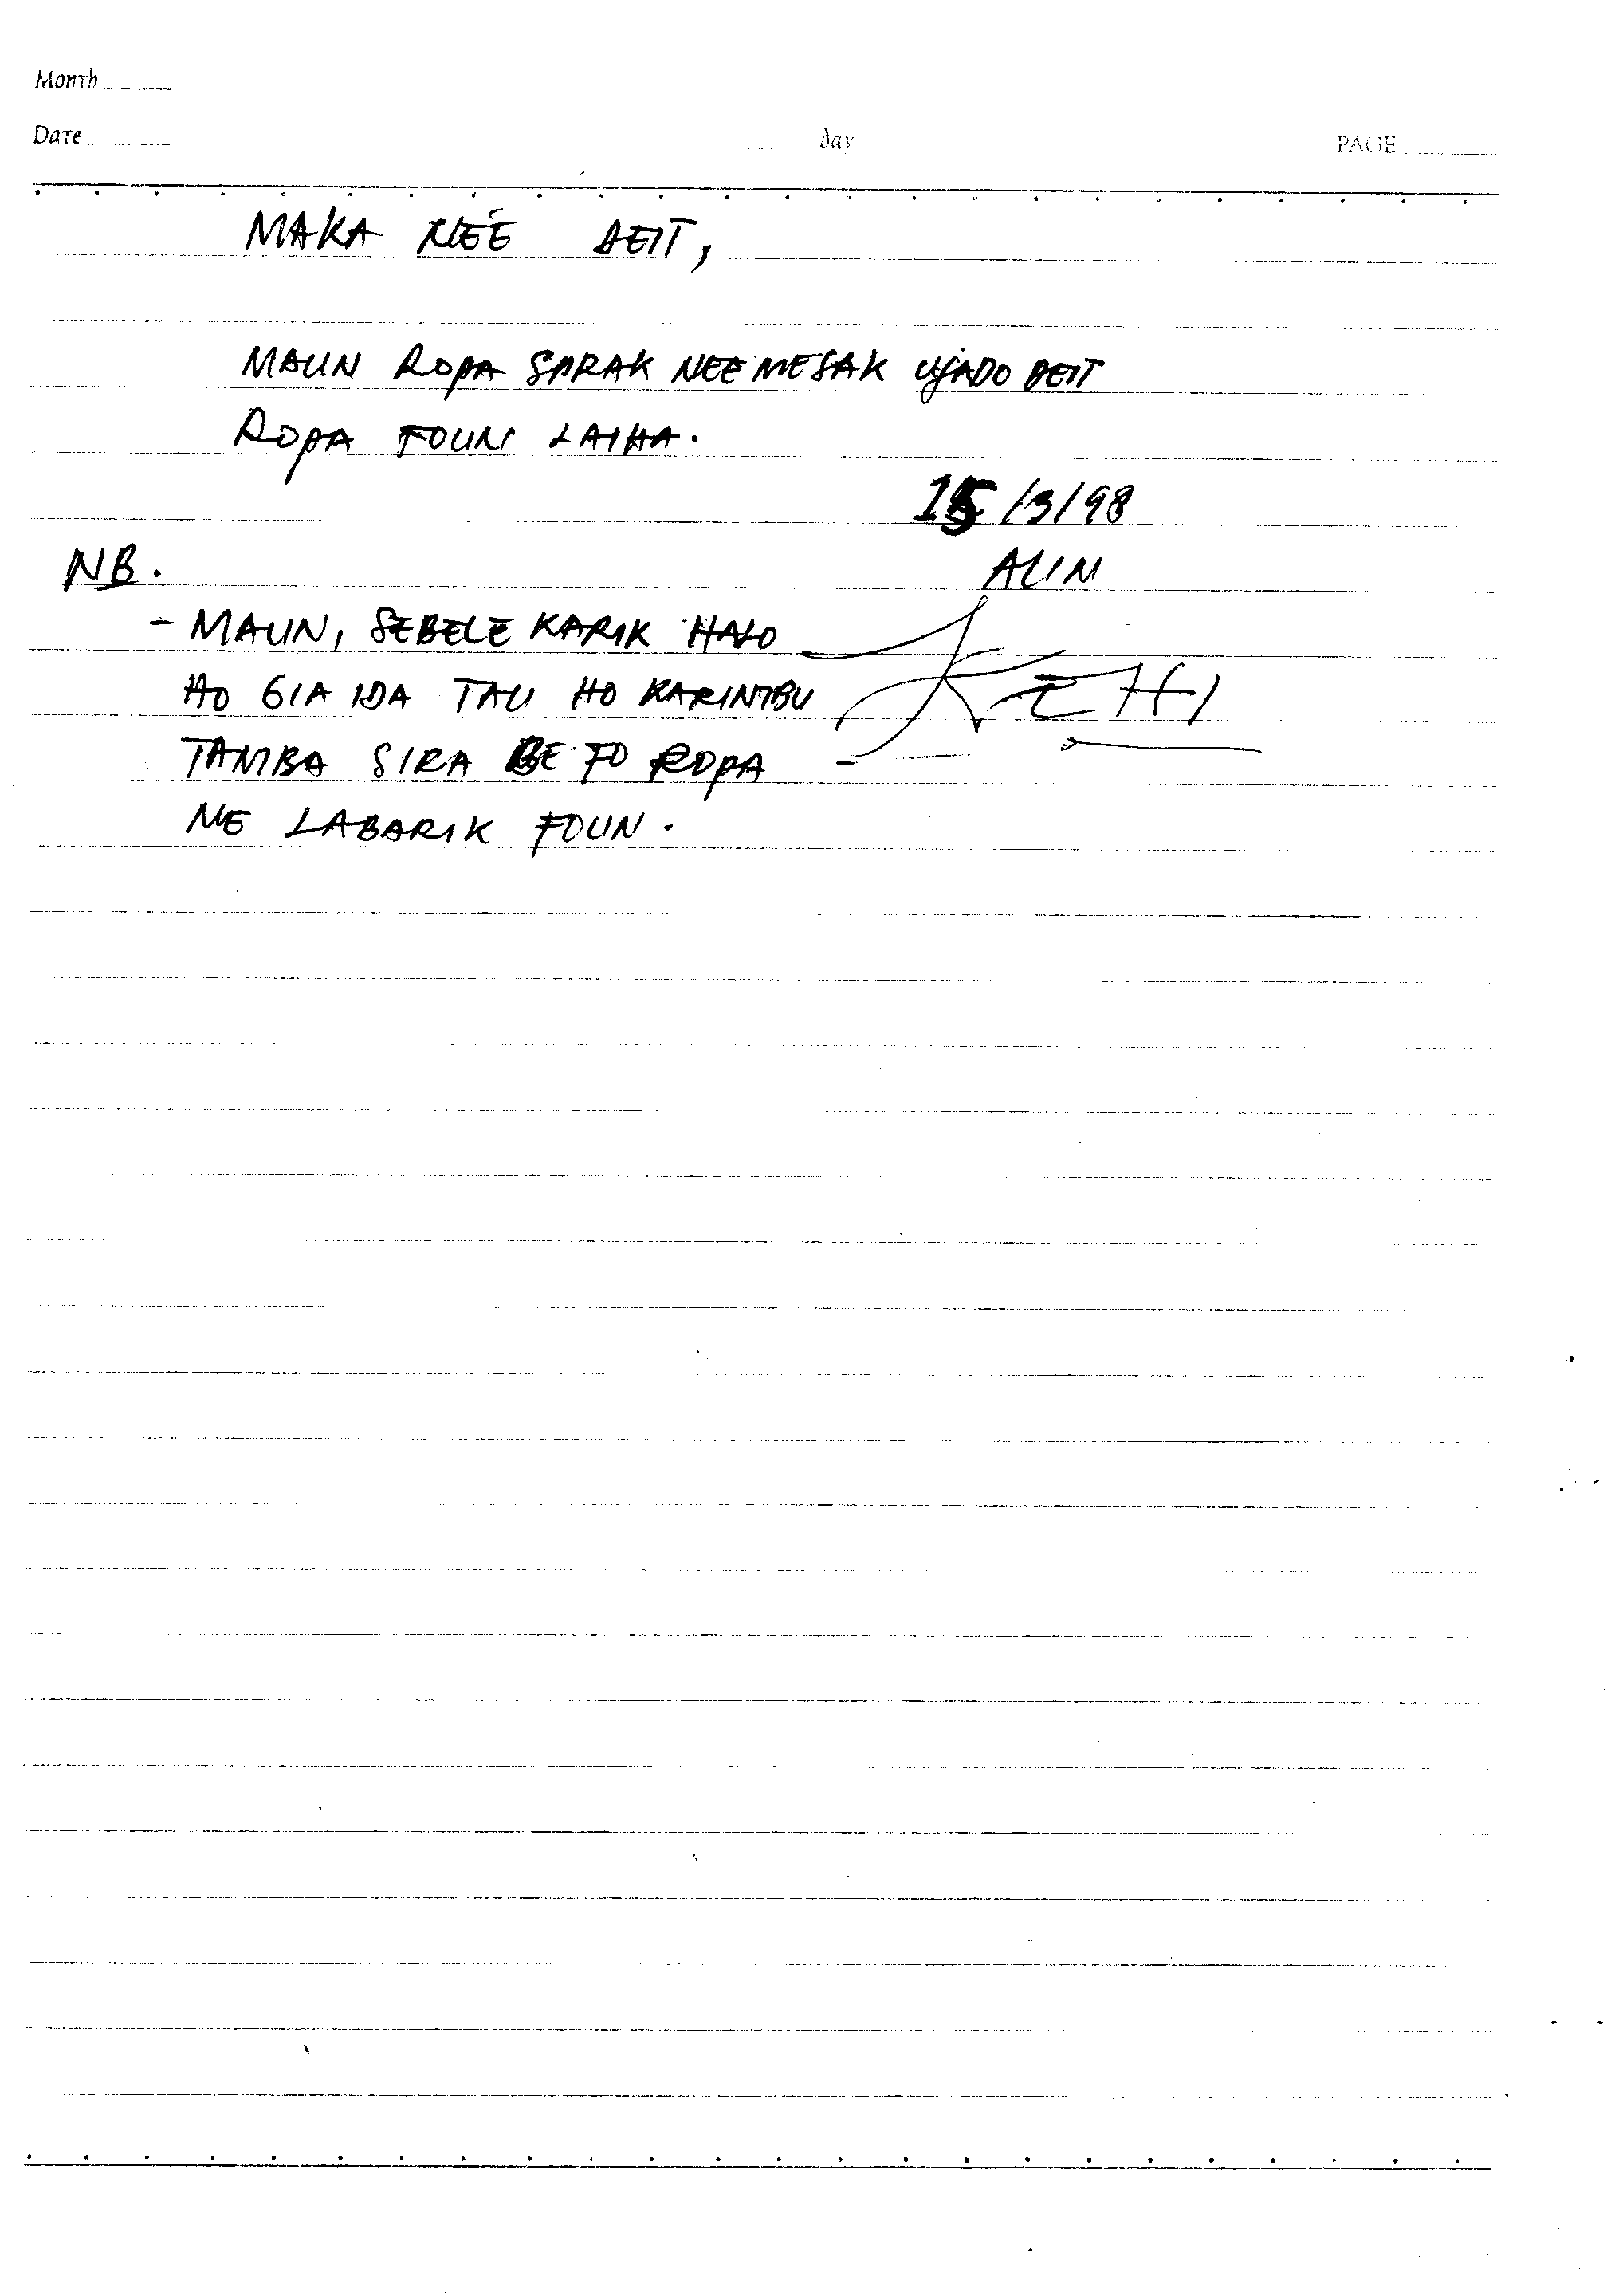 Month
Date
day
PAGE
MAKA NEÉ DEIT,
MAUN ROPA SARAK NEE MESAK UJADO DEIT
ROPA FOUN LAIHA.
15/3/98
NB.
ALIN
- MAUN, SEBELE KARIK HALO
HO GIA IDA TAU HO KARIMBU
KEHI
TAMBA SIRA BE FO ROPA
NE LABARIK FOUN.